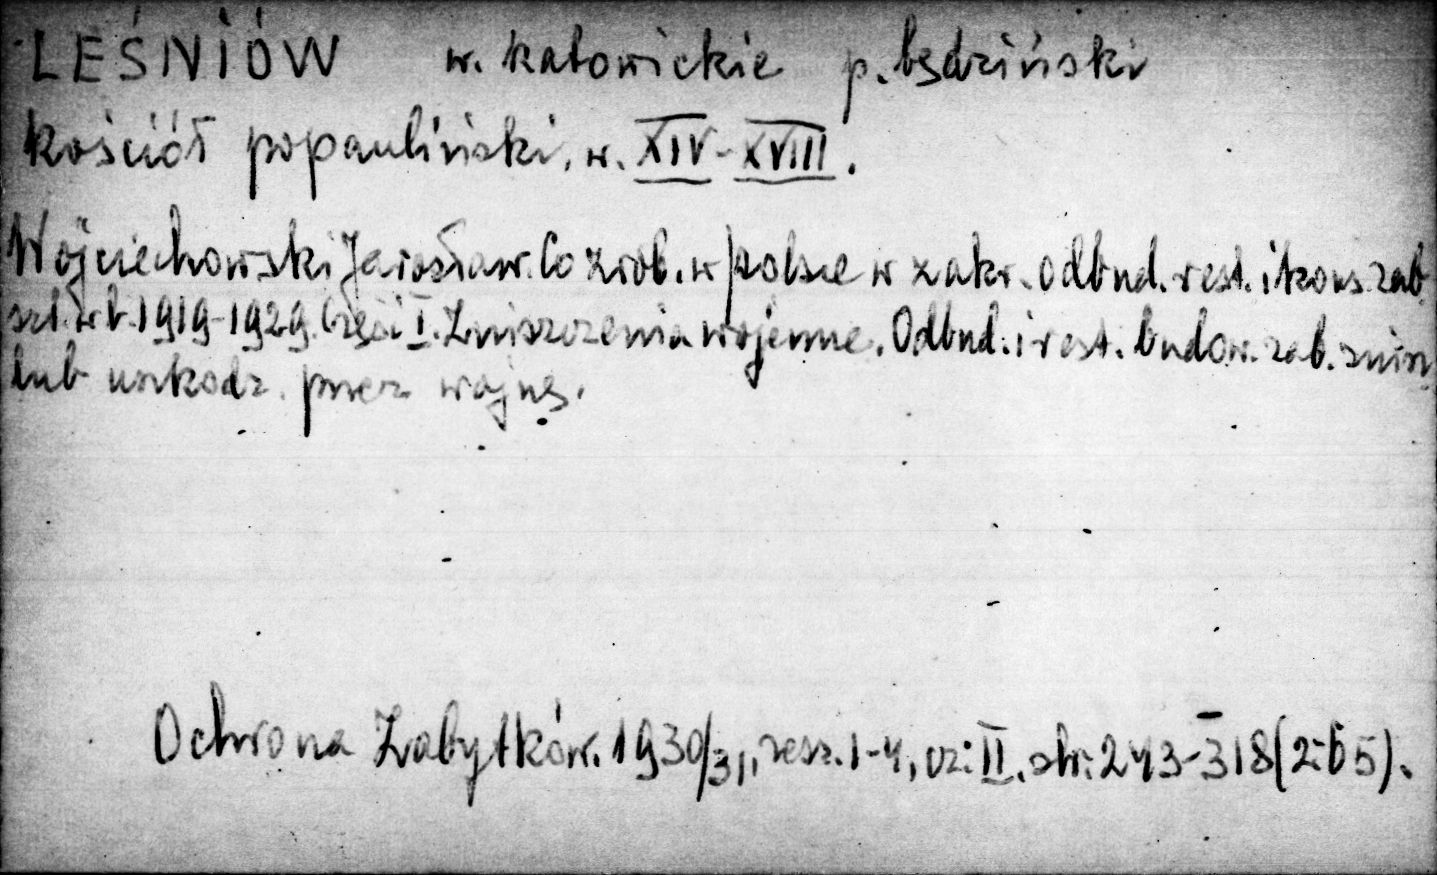 LEŚNIÓW w. katowickie p. będziński
kościół popauliński, w. XIV-XVIII.
Wojciechowski Jarosław. Co zrob. w Polsce w zakr. odbud. rest. i kons. zab
szt. w l. 1919-1929. Część I. Zniszczenia wojenne. Odbud. i rest. budow. zab. znisz
lub uszkodz. przez wojnę.
Ochrona Zabytków. 1930/31, zesz. 1-4, cz: II. str: 243-318 (265).